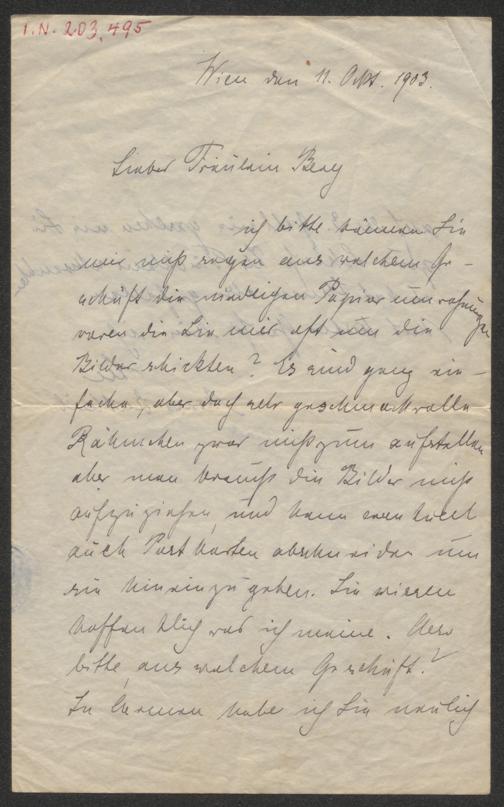 I.N. 203.495
Wien den 11. Okt. 1903.
Liebes Fräulein Berg
ich bitte können Sie
mir nicht sagen aus welchem Ge-
schäft die niedlichen Papierumrahmungen
waren die Sie mir oft um die
Bilder schickten? Es sind ganz ein-
fache, aber doch sehr geschmackvolle
Rähmchen zwar nicht zum aufstellen
aber man braucht die Bilder nicht
aufzuziehen, und kann eventuell
auch Postkarten abschneiden um
sie hineinzugeben. Sie wissen
hoffentlich was ich meine. Also
bitte, aus welchem Geschäft?
In habe ich Sie neulich